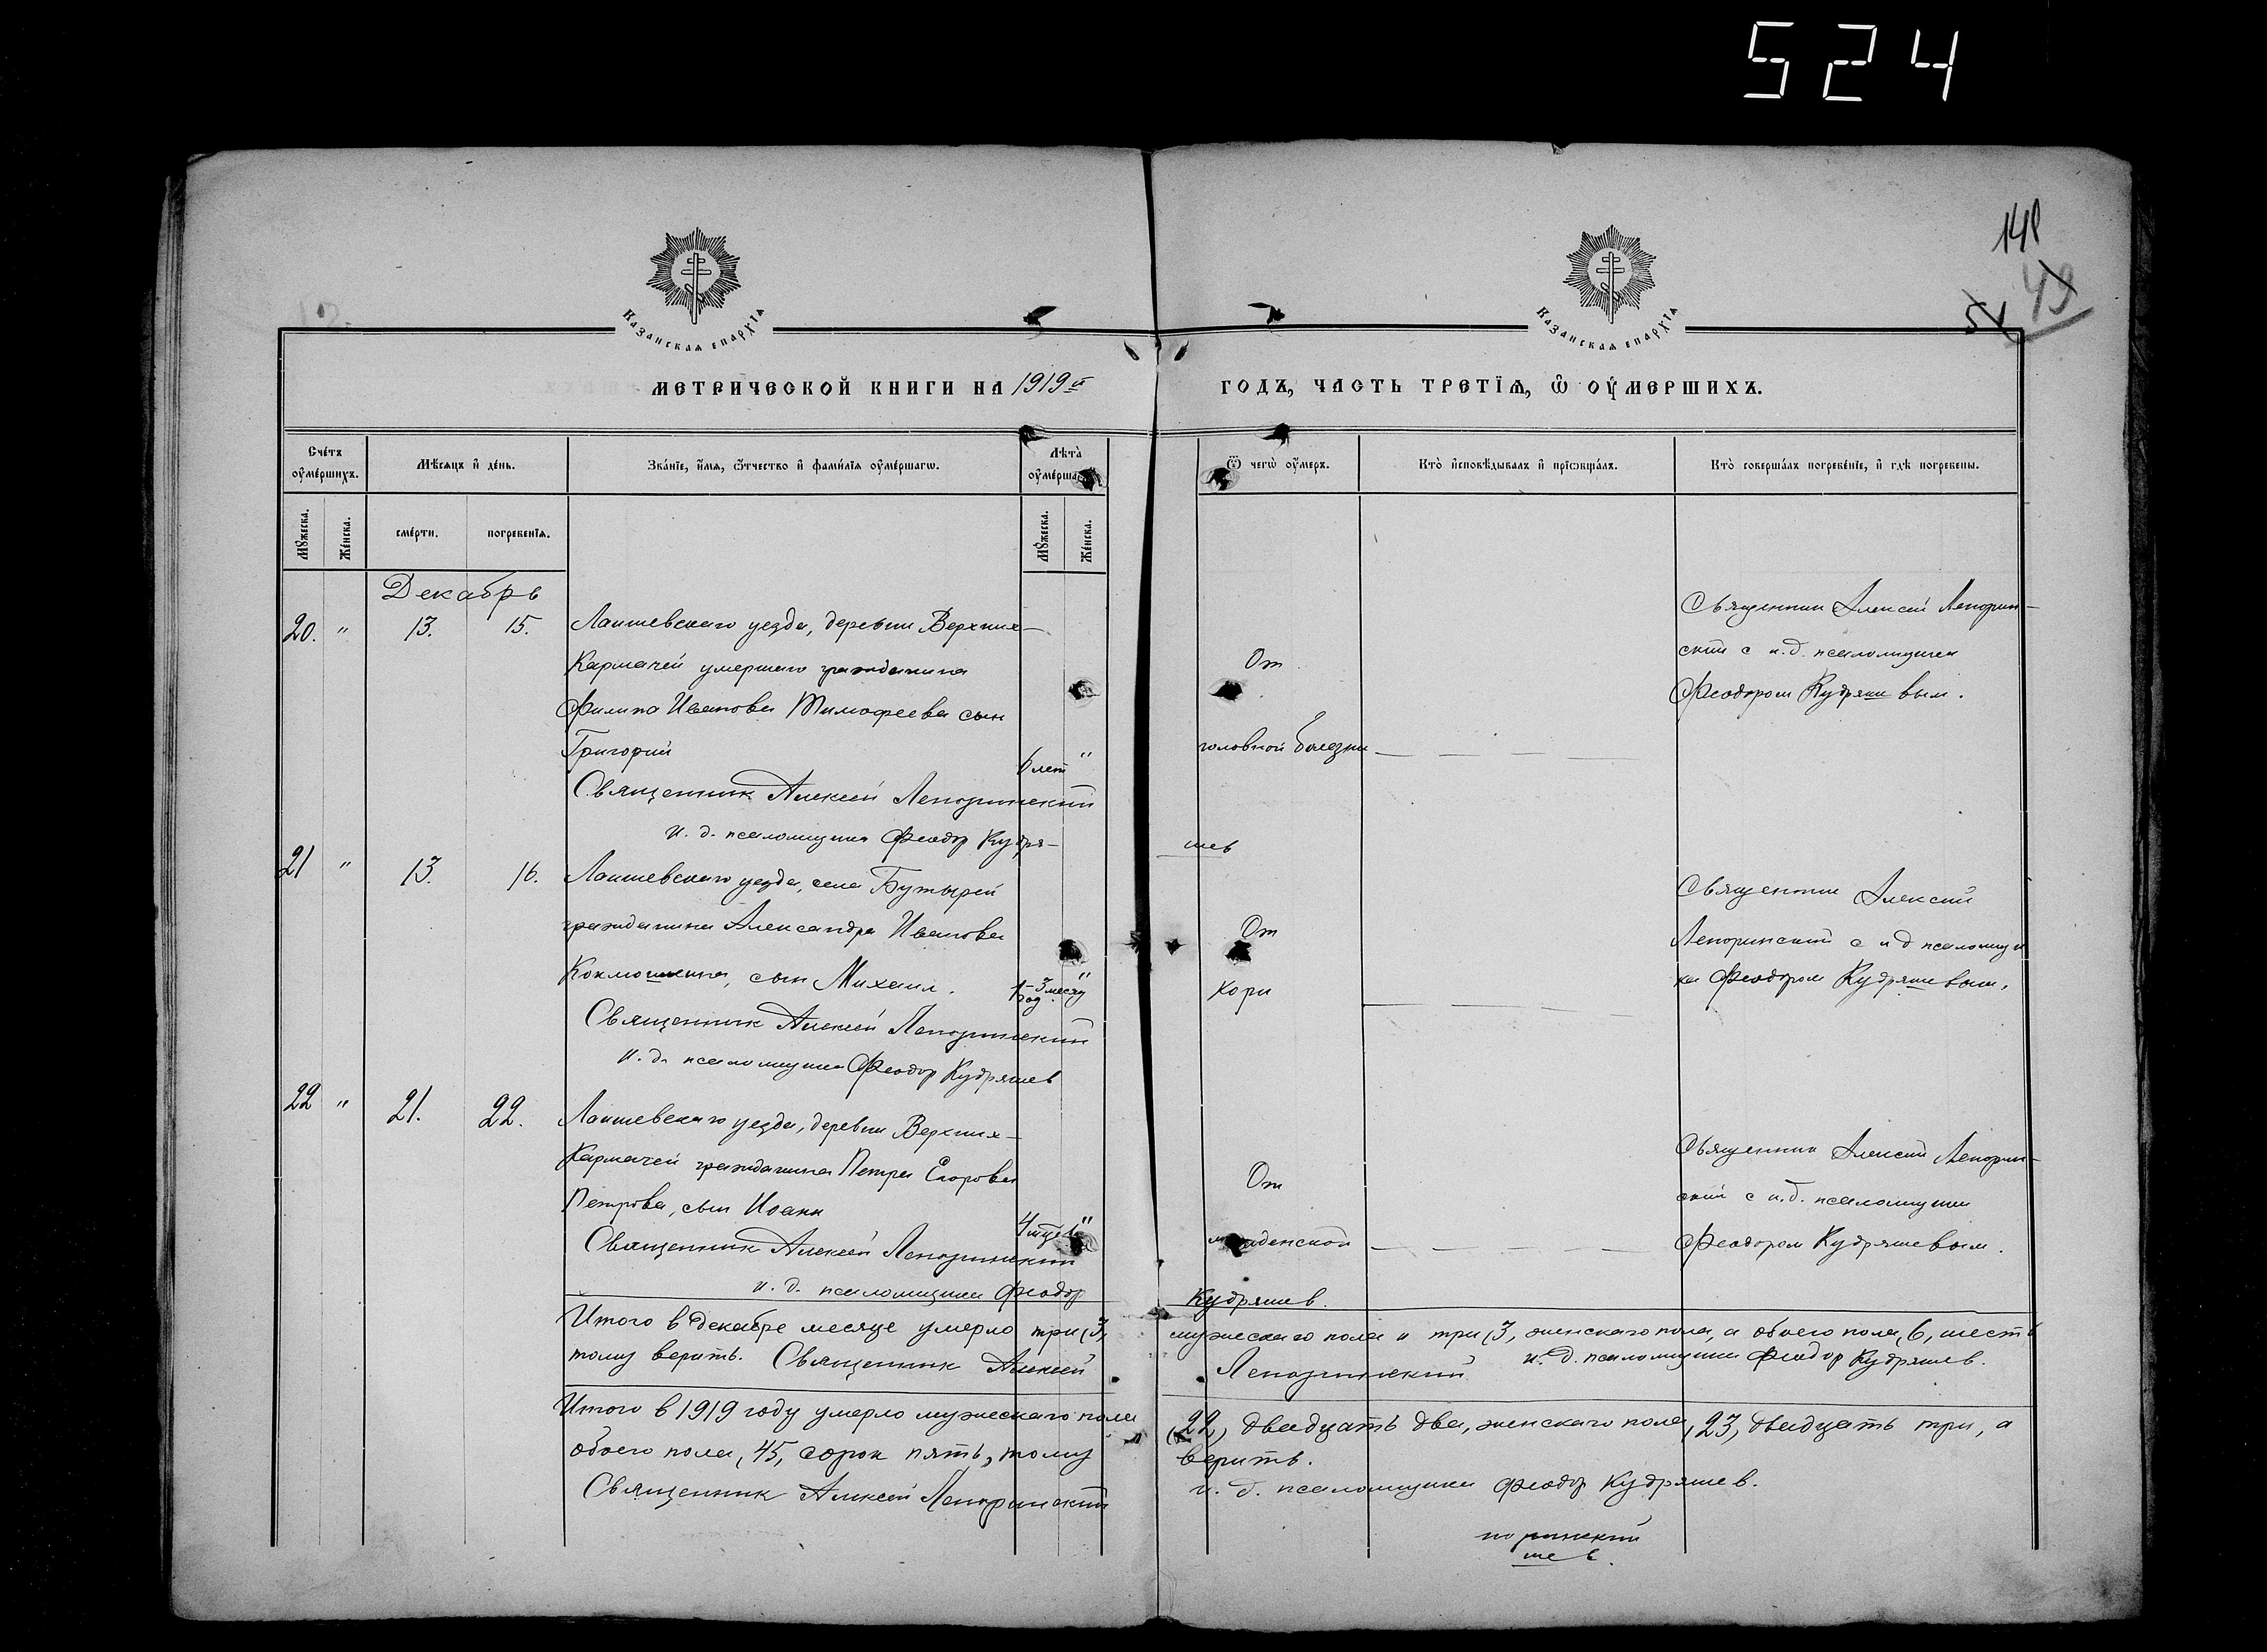 524
148
49
51
Казанская епархїѧ
Казанская епархїѧ
МЕТРИЧЕСКОЙ КНИГИ НА 1919й ГОДЪ, ЧАСТЬ ТРЕТІЯ, Ѽ ОУМЕРШИХЪ.
Счетъ оумершихъ.
Мѣсяцъ и день.
Званіе, имя, Ѿчество и фамилія оумершагѡ.
Лѣта оумершагѡ
Ѿ чегѡ оумеръ.
Кто исповѣдывалъ и пріѡбщалъ.
Кто совершалъ погребеніе, и гдѣ погребены.
Мужеска.
Женска.
смерти.
погребенія.
Мужеска.
Женска.
Декабрь
20. " 13. 15. Лаишевскаго уезда, деревни Верхних-
Кармачей умершаго гражданина
Филипа Иванова Тимофеева сын
Григорий 6 лет "
От
головной болезни
Священник Алексей Лепорин-
ский с и.д. псаломщика
Феодором Кудряшевым.
Священник Алексей Лепоринский
и. д. псаломщика Феодор Кудря-
шев
21 " 13. 16. Лаишевскаго уезда, села Бутырей
гражданина Александра Иванова
Кокмошкина, сын Михаил. 1 год - 3 месяц "
От
Кори
Священник Алексей
Лепоринский с и д псаломщи
ка Феодором Кудряшевым,
Священник Алексей Лепоринский
и. д. псаломщика Феодор Кудряшев
22 " 21. 22. Лаишевскаго уезда, деревни Верхних-
Кармачей гражданина Петра Егорова
Петрова, сын Иоанн 4 "
От
младенской
Священник Алексей Лепорин-
ский с и.д. псаломщика
Феодором Кудряшевым.
Священник Алексей Лепоринский
и. д. псаломщика Феодор Кудряшев.
Итого в декабре месяце умерло три, 3, мужескаго пола и три, 3, женскаго пола, а обоего пола, 6, шесть
тому верить. Священник Алексей Лепоринский и. д. псаломщика Феодор Кудряшев.
Итого в 1919 году умерло мужескаго пола (22, двадцать два, женскаго пола, 23, двадцать три, а
обоего пола, 45, сорок пять, тому верить.
Священник Алексей Лепоринский и. д. псаломщика Феодор Кудряшев.
поринский
шев.